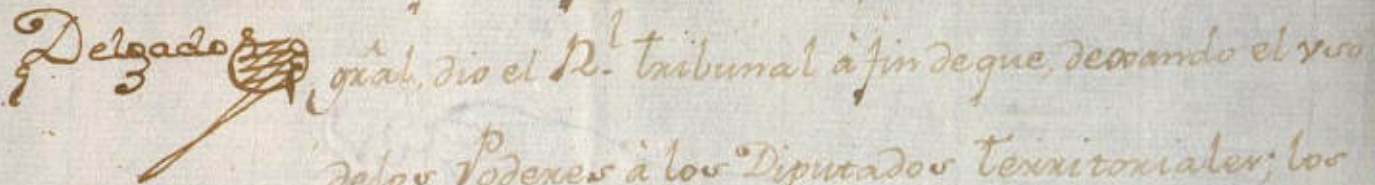 Delgado
grâl, dio el R.l tribunal à fin de que, dexando el vso
delos Poderes à los Diputados territoriales; los